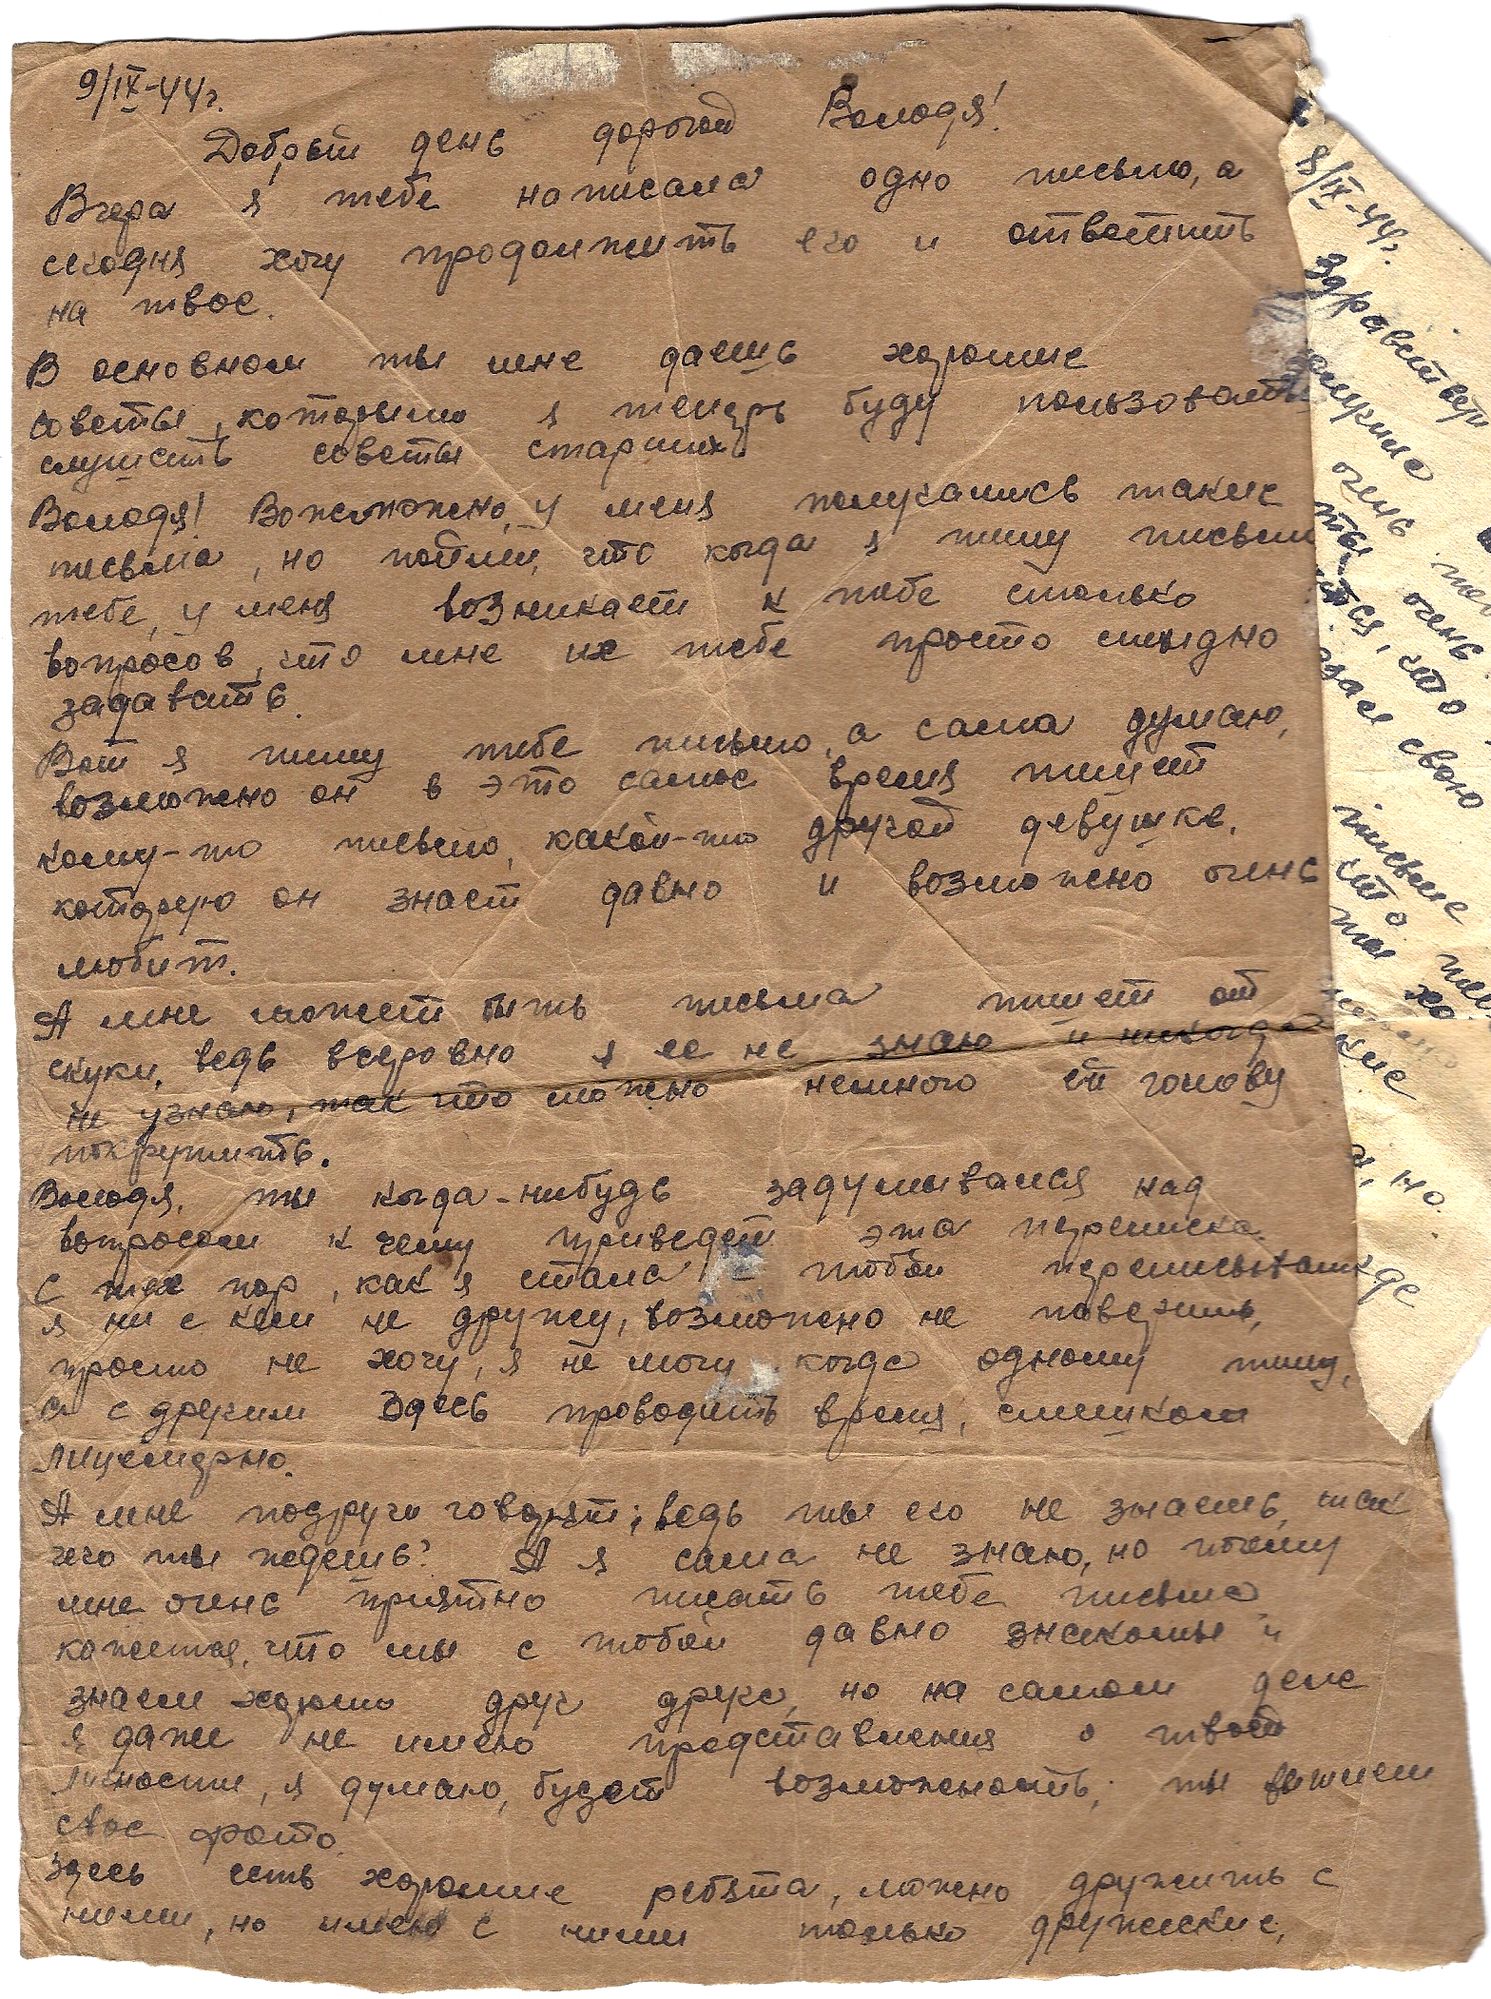 9/IX-44г.
Добрый день дорогой Володя!
Вчера я тебе написала одно письмо, а
сегодня хочу продолжить его и ответить
на твое.
В основном ты мне даешь хорошие
советы, которыми я теперь буду пользоваться
слушать советы старших
Володя! Возможно, у меня получались такие
письма, но пойми, что когда я пишу письмо
тебе, у меня возникает к тебе столько
вопросов, что мне их тебе просто стыдно
задавать.
Вот я пишу тебе письмо, а сама думаю,
возможно он в это самое время пишет
кому-то письмо, какой-то другой девушке,
которую он знает давно и возможно очень
любит.
А мне может быть письма пишет от
скуки, ведь всеровно я ее не знаю и никогда
не узнаю, так что можно немного ей голову
покружить.
Володя, ты когда-нибудь задумывался над
вопросом к чему приведет эта переписка.
С тех пор, как я стала с тобой переписываться
я ни с кем не дружу, возможно не поверишь,
просто не хочу, я не могу когда одному пишу,
а с другим здесь проводить время, слишком
лицемерно.
А мне подруги говорят; ведь ты его не знаешь, так
чего ты ждешь? А я сама не знаю, но почему
мне очень приятно писать тебе письма
кажется, что мы с тобой давно знакомы и
знаем хорошо друг друга, но на самом деле
я даже не имею представления о твоей
личности, я думаю, будет возможность, ты вышлеш
свое фото.
Здесь есть хорошие ребята, можно дружить с
ними, но имею с ними только дружеские,
8/IX-44г.
Здравствуй
очень
ты очень
что
свою
письме
что
ты хо
кие
но.